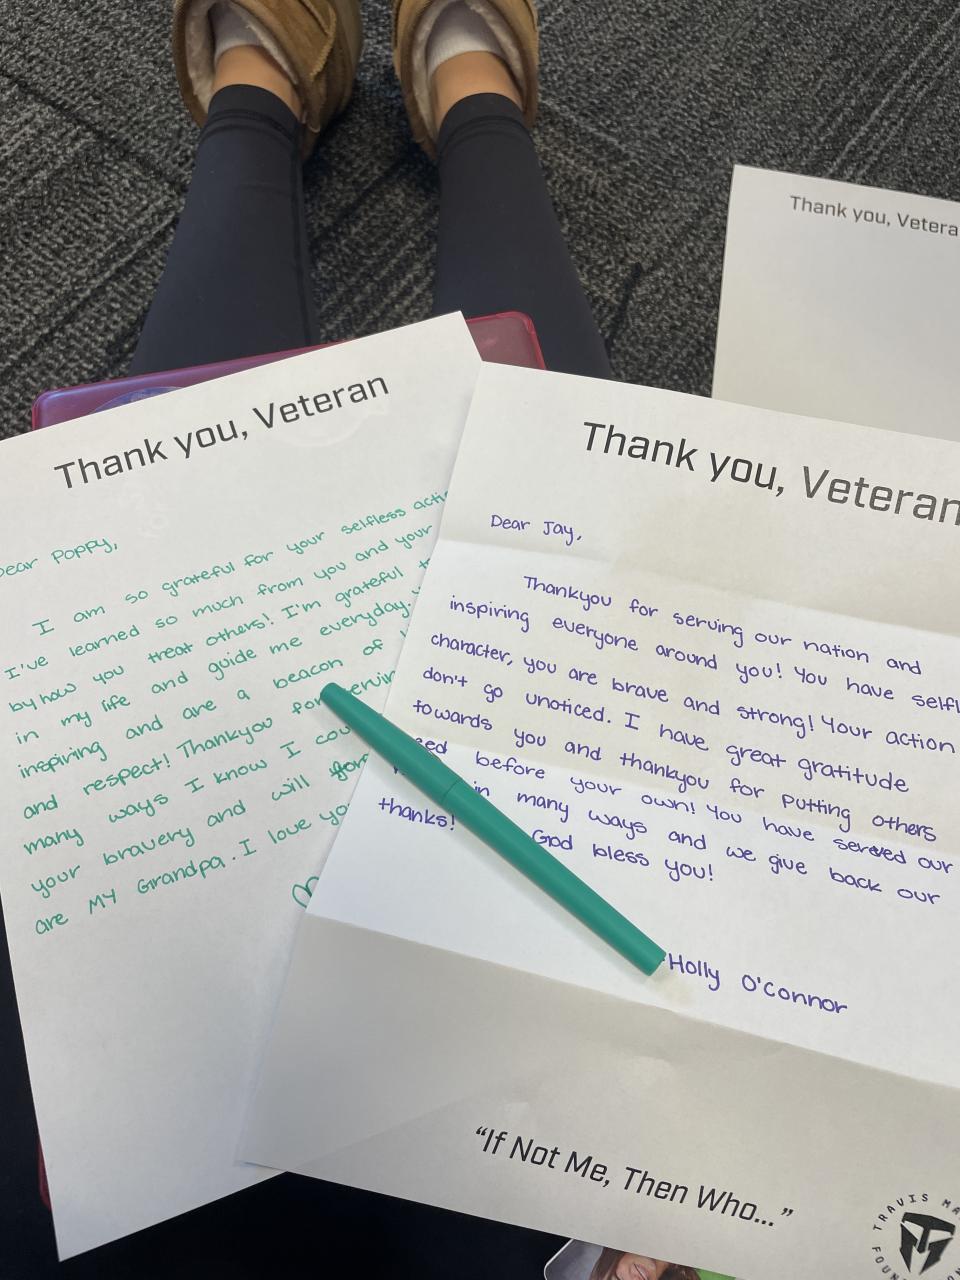 Thank you, Veteran
Dear Poppy,
I am so grateful for your selfless
I've learned so much from you and your
by how you treat others! I'm grateful
in my life and guide me everyday.
inspiring and are a beacon of
and respect! Thankyou for
many ways I know I
your bravery and will
are MY Grandpa. I love
Thank you, Veteran
Dear Jay,
Thankyou for serving our nation and
inspiring everyone around you! You have
character, you are brave and strong! Your action
don't go unoticed. I have great gratitude
towards you and thankyou for putting others
before your own! You have served our
in many ways and we give back our
thanks! God bless you!
-Holly O'Connor
"If Not Me, Then Who..."
TRAVIS
Thank you,